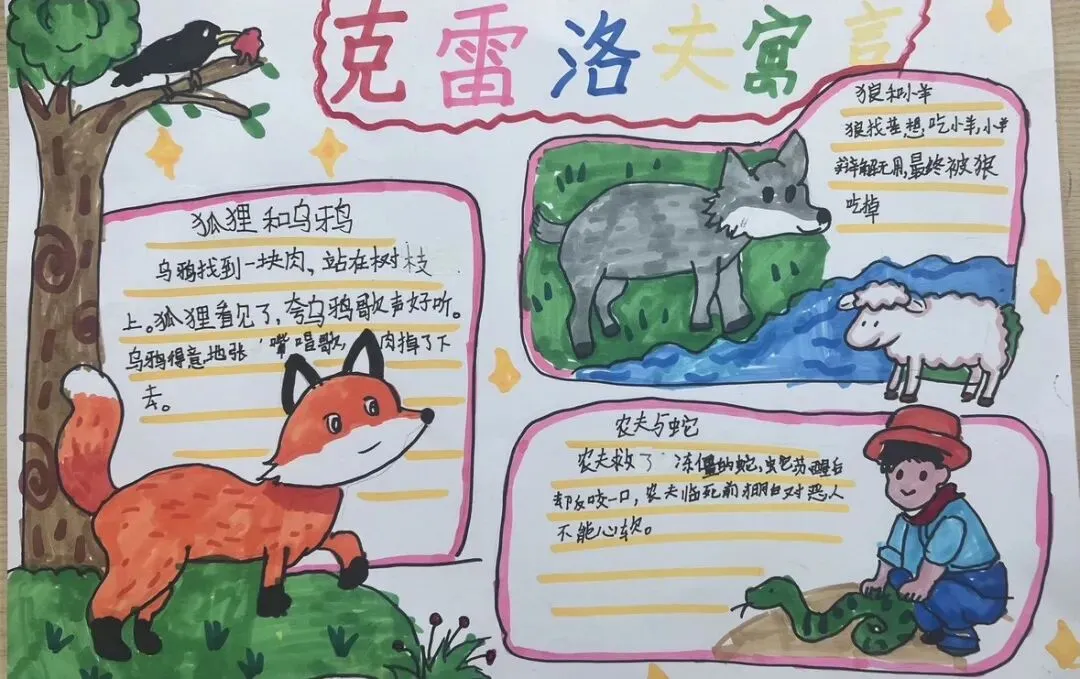 克雷洛夫寓言
狐狸和乌鸦
乌鸦找到一块肉，站在树枝
上。狐狸看见了，夸乌鸦歌声好听。
乌鸦得意地张嘴唱歌，肉掉了下
去。
狼和小羊
狼找茬想吃小羊，小羊
辩解无用，最终被狼
吃掉
农夫与蛇
农夫救了冻僵的蛇，蛇苏醒后
却反咬一口，农夫临死前明白对恶人
不能心软。